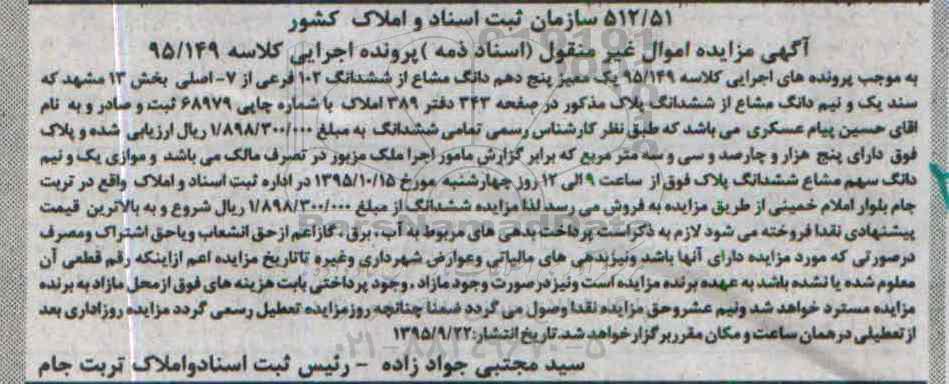 ۵۱۲/۵۱ سازمان ثبت اسناد و املاک کشور
آگهی مزایده اموال غیر منقول (اسناد ذمه) پرونده اجرایی کلاسه ۹۵/۱۴۹
به موجب پرونده های اجرایی کلاسه ۹۵/۱۴۹ یک ممیز پنج دهم دانگ مشاع از ششدانگ ۱۰۲ فرعی از ۷- اصلی بخش ۱۳ مشهد که
سند یک و نیم دانگ مشاع از ششدانگ پلاک مذکور در صفحه ۲۴۳ دفتر ۳۸۹ املاک با شماره چاپی ۶۸۹۷۹ ثبت و صادر و به نام
اقای حسین پیام عسکری می باشد که طبق نظر کارشناس رسمی تمامی ششدانگ به مبلغ ۱/۸۹۸/۳۰۰/۰۰۰ ریال ارزیابی شده و پلاک
فوق دارای پنج هزار و چارصد و سی و سه متر مربع که برابر گزارش مامور اجرا ملک مزبور در تصرف مالک می باشد و موازی یک و نیم
دانگ سهم مشاع ششدانگ پلاک فوق از ساعت ۹ الی ۱۲ روز چهارشنبه مورخ ۱۳۹۵/۱۰/۱۵ در اداره ثبت اسناد و املاک واقع در تربت
جام بلوار املام خمینی از طریق مزایده به فروش می رسد لذا مزایده ششدانگ از مبلغ ۱/۸۹۸/۳۰۰/۰۰۰ ریال شروع و به بالاترین قیمت
پیشنهادی نقدا فروخته می شود لازم به ذکراست پرداخت بدهی های مربوط به آب، برق، گازاعم ازحق انشعاب ویاحق اشتراک ومصرف
درصورتی که مورد مزایده دارای آنها باشد ونیزبدهی های مالیاتی وعوارض شهرداری وغیره تاتاریخ مزایده اعم ازاینکه رقم قطعی آن
معلوم شده یا نشده باشد به عهده برنده مزایده است ونیز درصورت وجود مازاد ، وجود پرداختی بابت هزینه های فوق ازمحل مازاد به برنده
مزایده مسترد خواهد شد ونیم عشروحق مزایده نقدا وصول می گردد ضمنا چنانچه روزمزایده تعطیل رسمی گردد مزایده روزاداری بعد
ازتعطیلی در همان ساعت و مکان مقرربرگزارخواهد شد. تاریخ انتشار: ۱۳۹۵/۹/۲۲
سید مجتبی جواد زاده - رئیس ثبت اسنادواملاک تربت جام